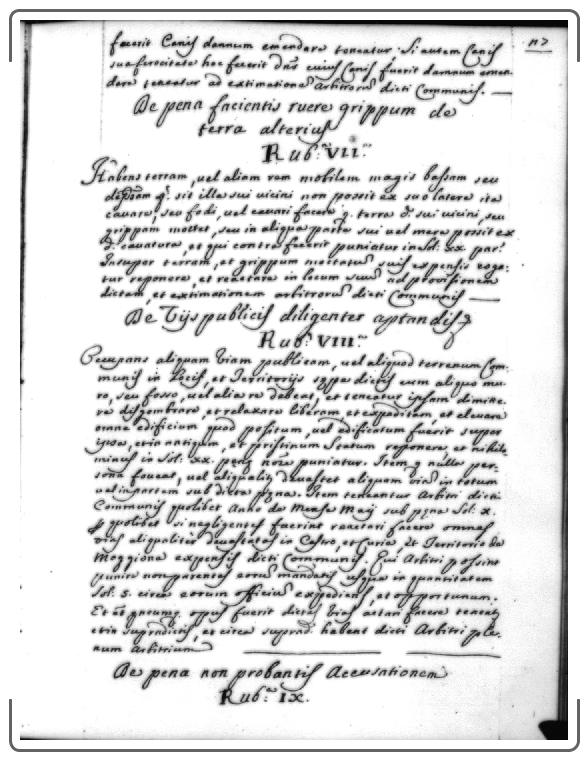 117
facerit Canis dannum emendare teneatur. Si autem Canis
sua ferocitate hoc fecerit dns cuius Canis fuerit damnum emen-
dare teneatur ad extimatione Arbitroru dicti Communis.
De pena facientis ruere grippum de
terra alterius
Rub. VII.
Habens terram, vel aliam rem mobilem magis bassam seu
sit illa sui vicini non possit ex suo latere ita
cavare, seu fodi, vel cavari facere q. terra d. sui vicini, seu
grippum mottet, seu in aliqua parte sui vel mere possit ex
d. cavatura, et qui contra fecerit puniatur in Sol. XX. par.
Insuper terram, et grippum moctatus suis expensis coga-
tur reponere, et reactare in locum suum ad provisionem
dictam, et extimationem arbitroru dicti Communis
De Vijs publicis diligenter aptandis
Rub. VIII.
Occupans aliquam viam publicam, vel aliquod terrenum Com-
munis in Locis, et Territorijs sppe dictis cum aliquo mu-
ro, seu fosso, vel alia re debeat, et teneatur ipsam dimitte-
re disgombrare, et relaxare liberam et expeditam, et elevare
omne edificium quod positum, vel edificatum fuerit super
ipsa, et in antiquum, et pristinum statum reponere, et nihilo
minus in Sol. XX. pene noie puniatur. Item q nulla per-
sona foveat, vel aliqualiter devastet aliquam viam in totum
vel in partem sub dicta pena. Item teneantur Arbitri dicti
Communis quolibet Anno de Mense Maij sub pena Sol. X.
p quolibet si negligentes fuerint reactari facere omnes
vias aliqualiter devastatas in Castro, et Curia, et Territorio de
Maggiona expensis dicti Communis. Qui Arbitri possint
punire non parentes eoru mandatis usque in quantitatem
Sol. 5. circa eorum officiu expediens, et opportunum.
Et et quoties opus fuerit dictas vias actari facere teneant
etia supradictis, et circa suprad. habeant dicti Arbitri ple-
num Arbitrium
De pena non probantis Accusationem
Rub. IX.